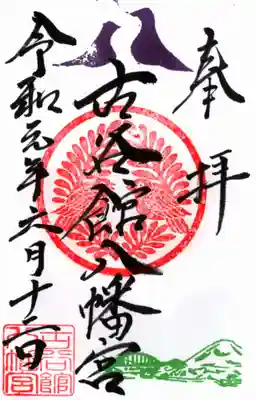 奉拝
八
古谷館八幡宮
令和元年六月十二日
古谷館
八幡宮